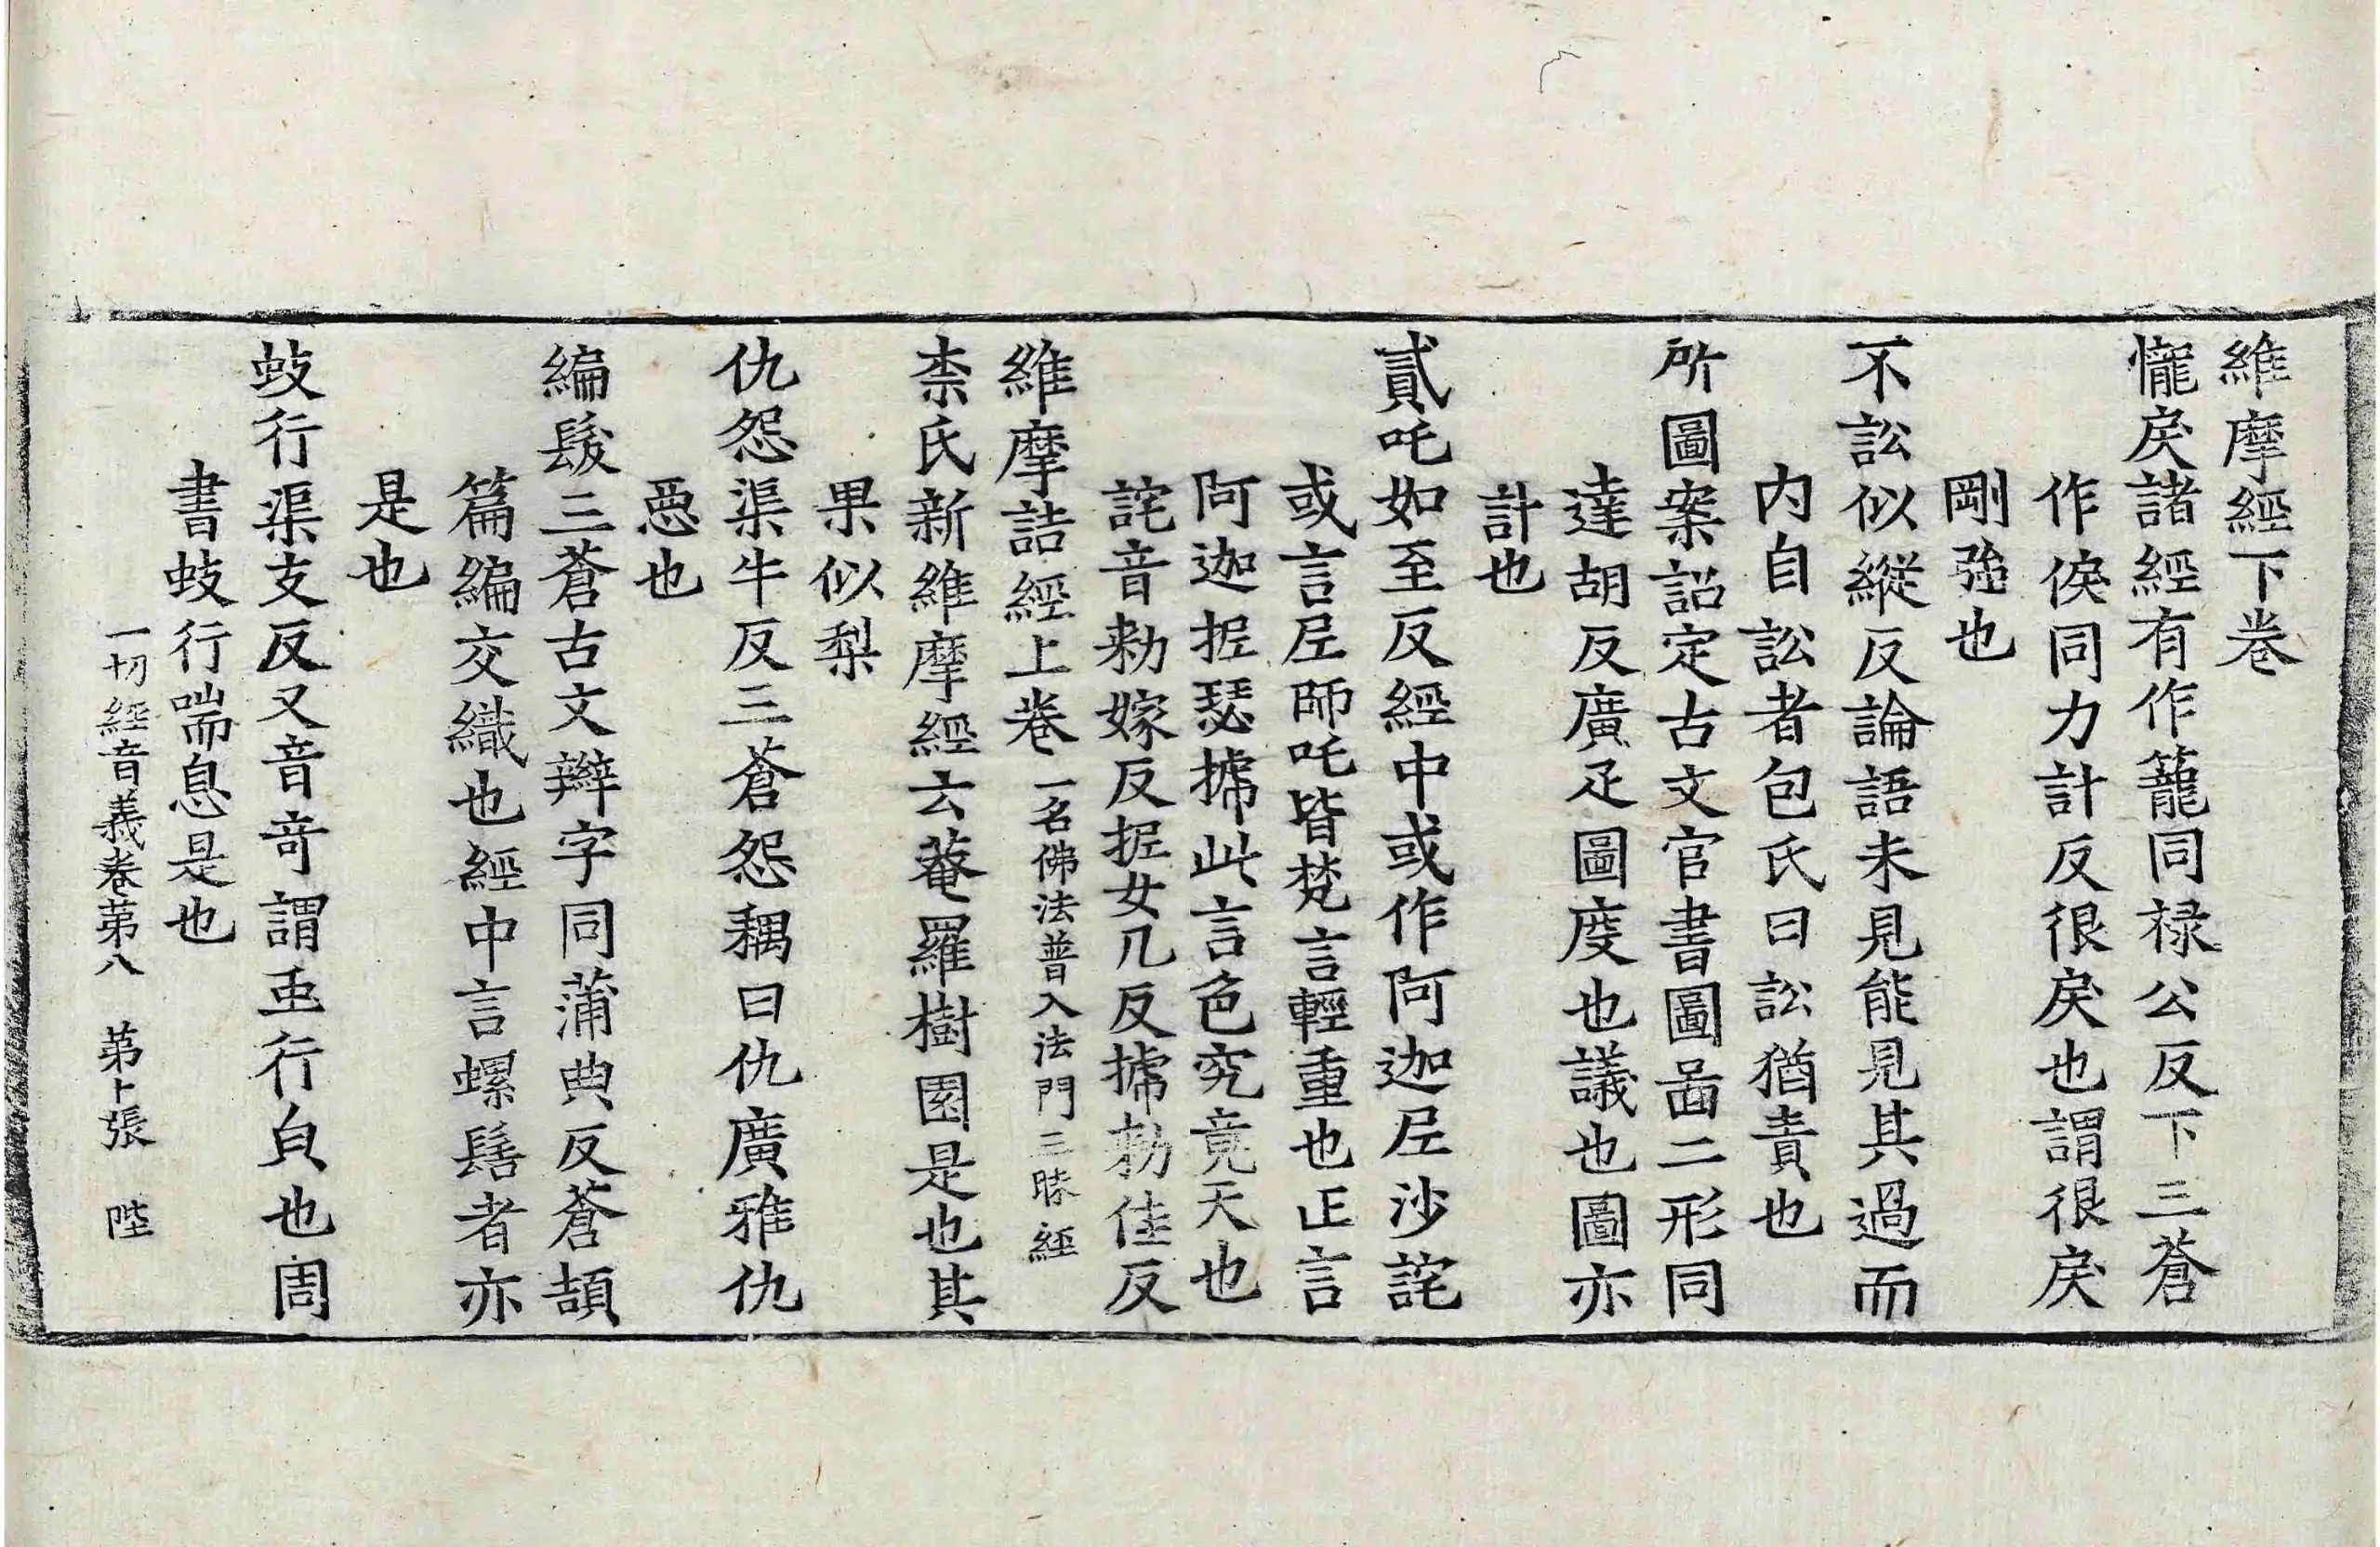 維摩經下卷
㦕戾諸經有作籠同禄公反下三蒼
作㑦同力計反很戾也謂很戾
剛強也
不訟似縱反論語未見能見其過而
內自訟者包氏曰訟猶責也
所圖案詔定古文官書圖啚二形同
達胡反廣疋圖度也議也圖亦
計也
貳吒如至反經中或作阿迦𡰱沙詫
或言𡰱師吒皆梵言輕重也正言
阿迦抳瑟搋此言色究竟天也
詫音勑嫁反抳女几反搋勑佳反
維摩詰經上卷一名佛法普入法門三昧經
柰氏新維摩經云菴羅樹園是也其
果似梨
仇怨渠牛反三蒼怨耦曰仇廣雅仇
惡也
編髮三蒼古文辮字同蒲典反蒼頡
篇編交織也經中言螺髻者亦
是也
蚑行渠支反又音奇謂虫行皃也周
書蚑行喘息是也
一切經音義卷第八　第卜張　陛